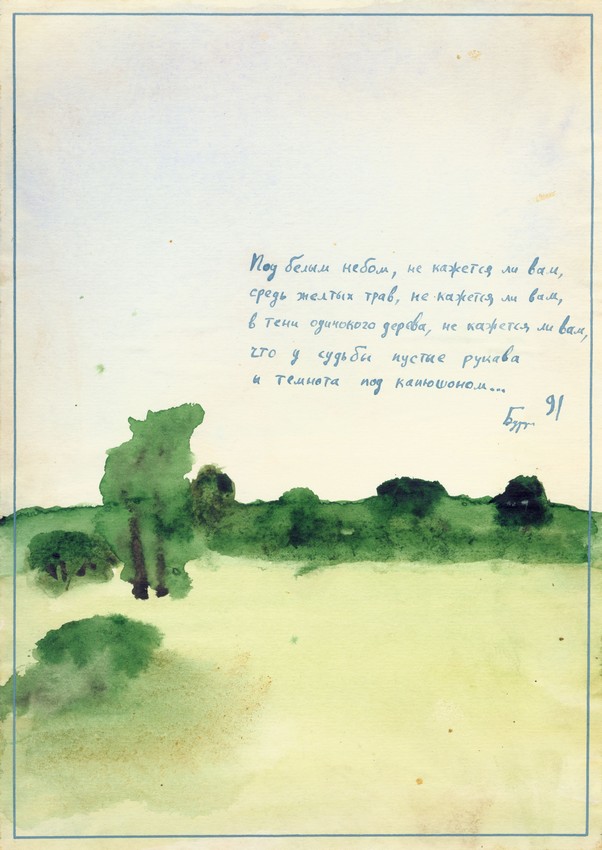 Под белым небом, не кажется ли вам,
средь желтых трав, не кажется ли вам,
в тени одинокого дерева, не кажется ли вам,
что у судьбы пустые рукава
и темнота под капюшоном...
91